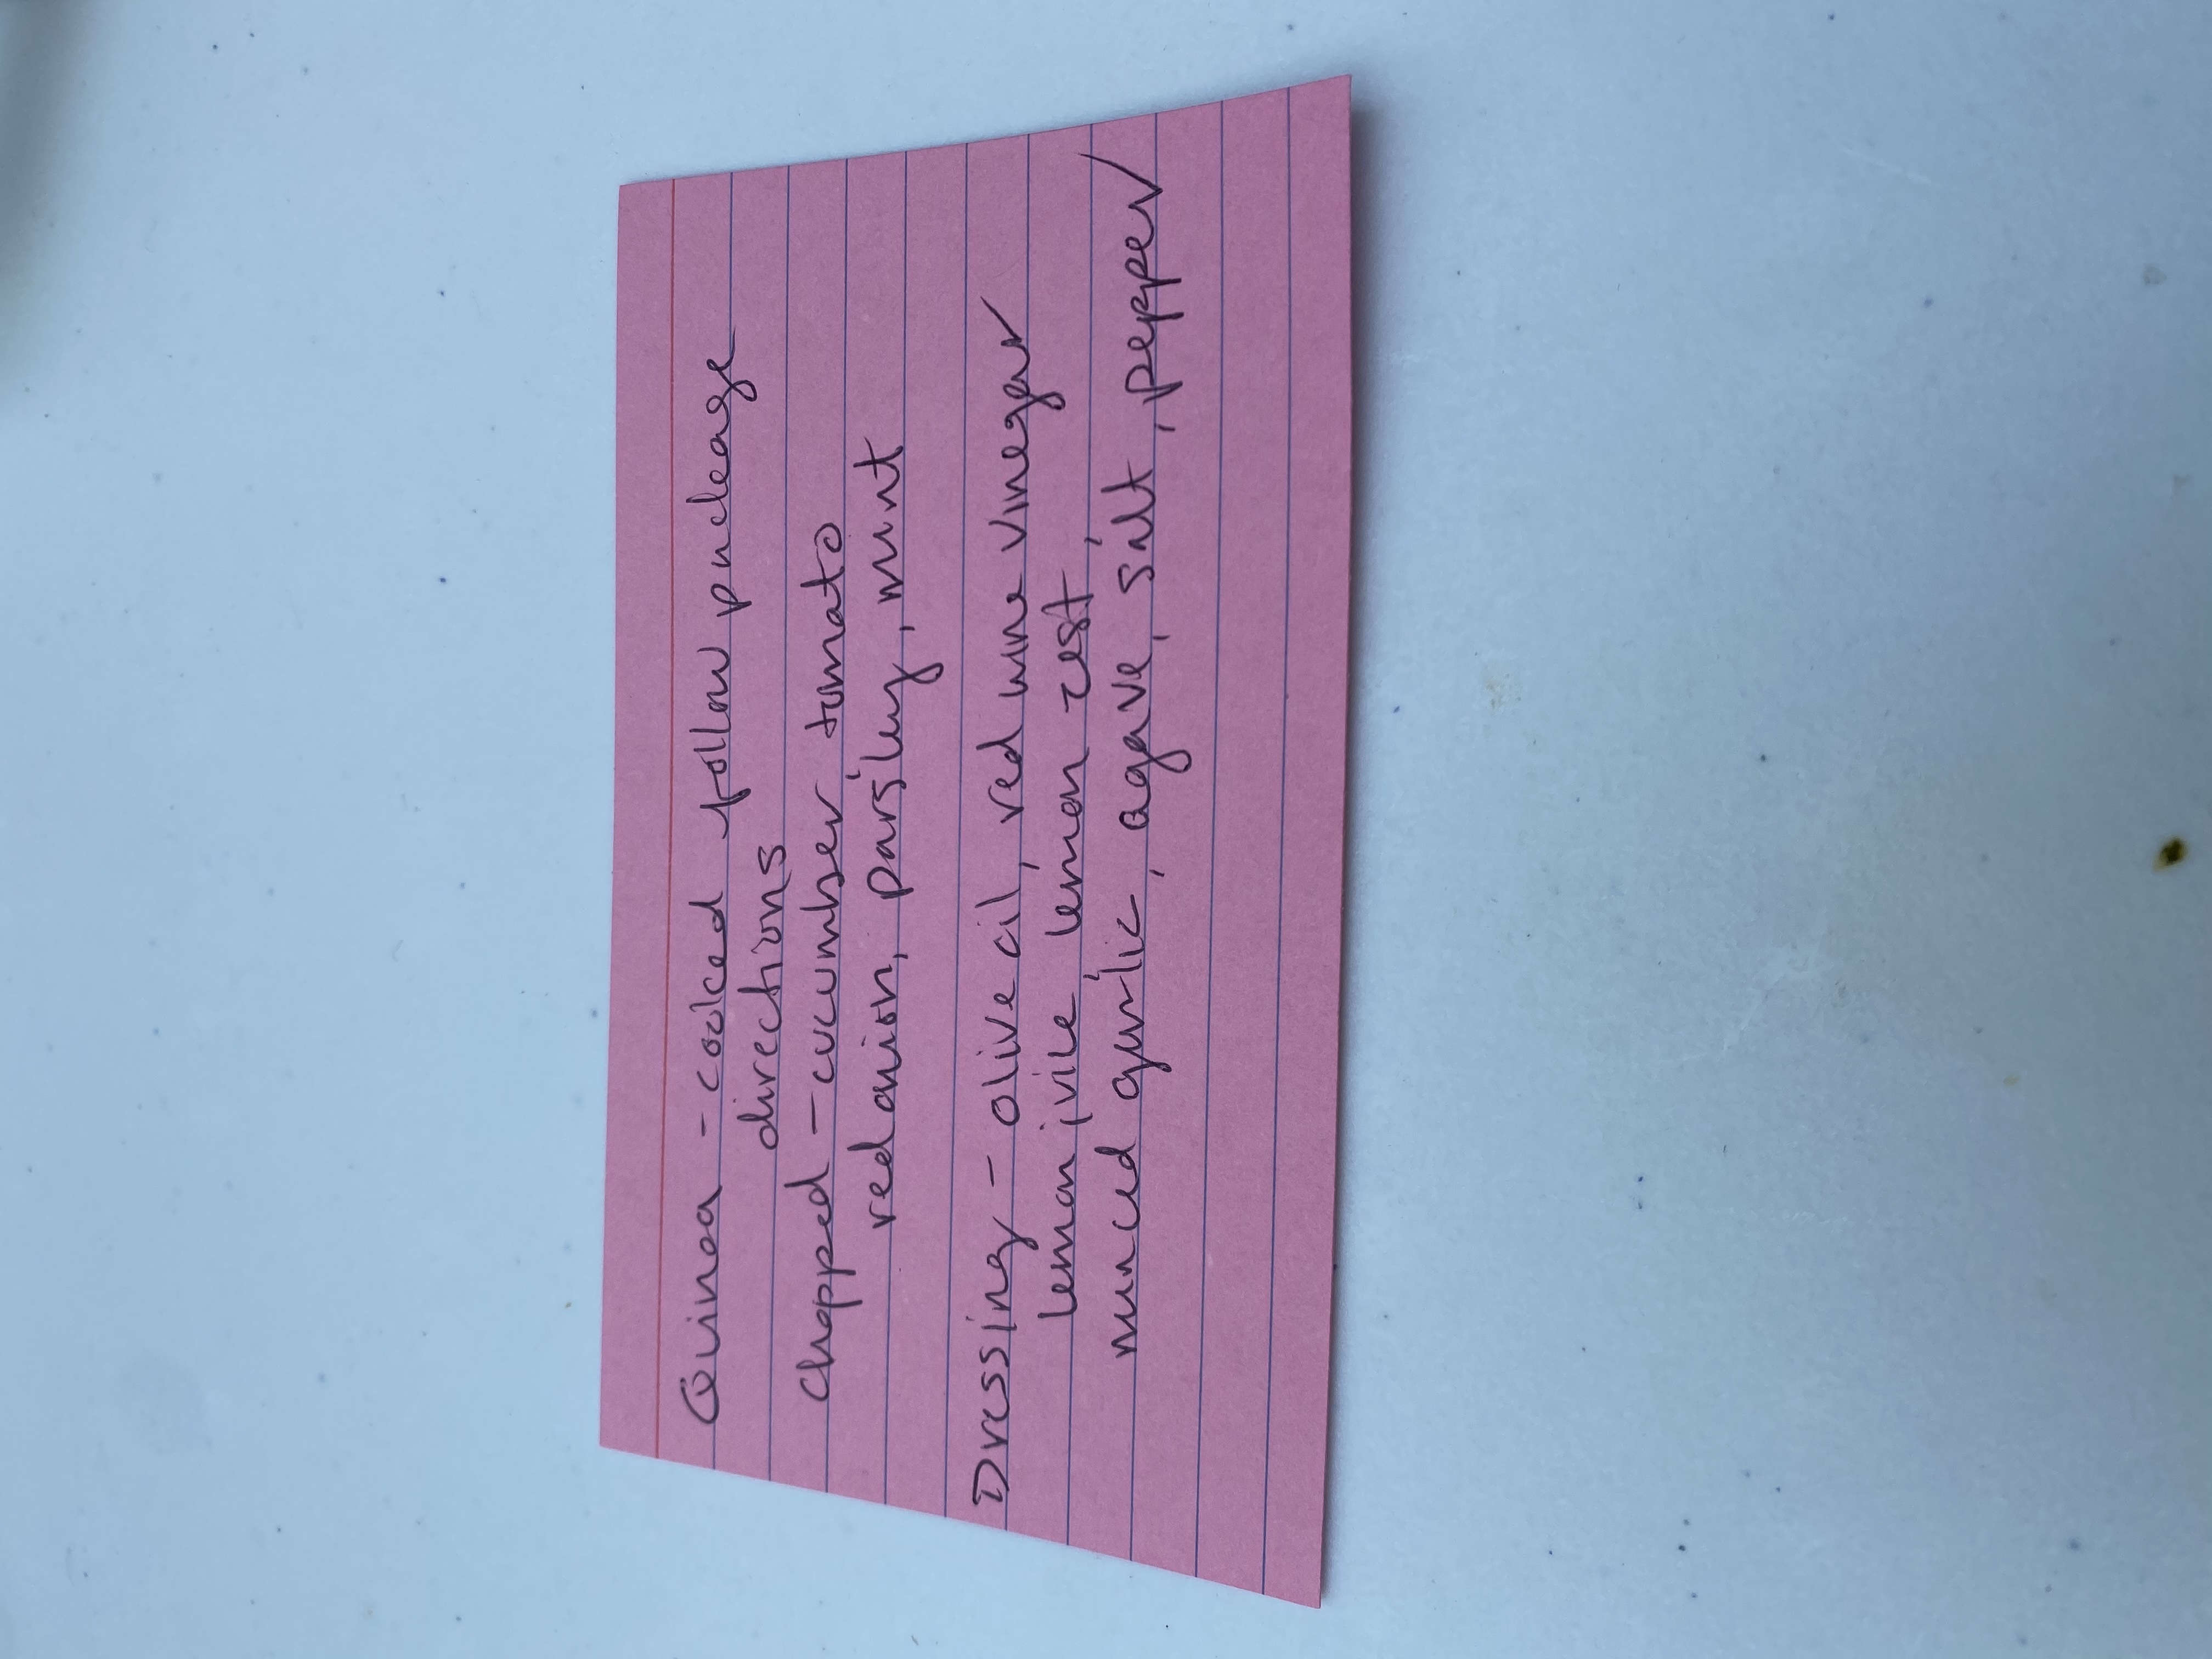 Quinoa - cooked follow package
directions
Chopped - cucumber tomato
red onion, parsley, mint
Dressing - olive oil, red wine vinegar
lemon juice, lemon zest,
minced garlic, agave, salt, pepper